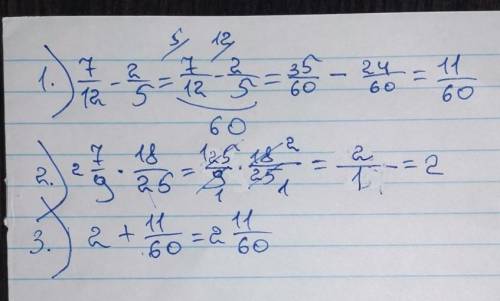 1.) 7/12 - 2/5 = 5/ 7/12 - 12/ 2/5 = 35/60 - 24/60 = 11/60
60
2.) 2 7/9 · 18/25 = 25/9 · 18/25 = 2/1 = 2
3.) 2 + 11/60 = 2 11/60